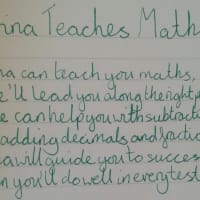 ina Teaches Math
na can teach you maths,
e'll lead you along the right p
e can help you with subtracti
adding decimals and fractio
a will guide you to success
n you'll do well in every test